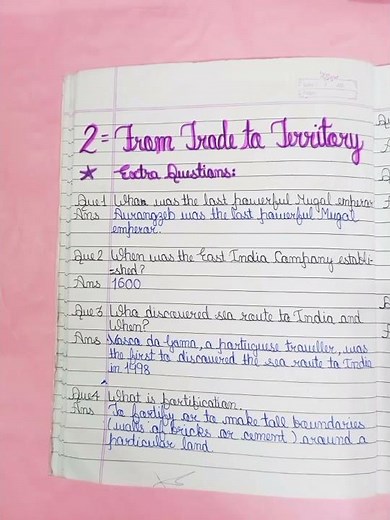 2= From Trade to Territory
★ Extra Questions:
Que1 Whom was the last powerful Mugal emperor
Ans Aurangzeb was the last powerful Mugal
emperor.
Que2 When was the East India Company establi-
-shed?
Ans 1600
Que3 Who discovered sea route to India and
When?
Ans Vasca da Gama, a portuguese traveller, was
the first to discovered the sea route to India
in 1998
Que4 What is fortification.
Ans To fortify or to make tall boundaries
(walls of bricks or cement) around a
particular land